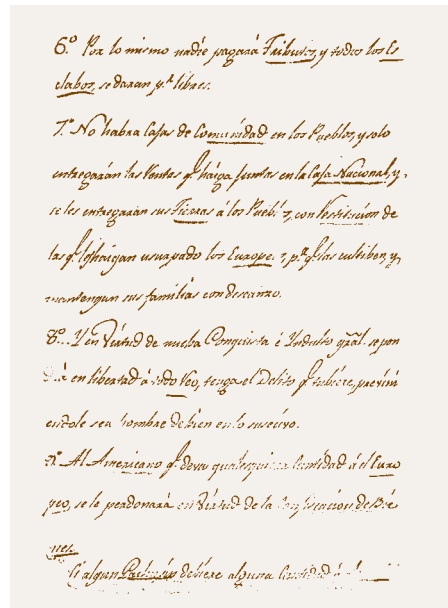 6.º Por lo mismo nadie pagará Tributos, y todos los Es
clabos, se daran p.r libres.
7.º No habra Casas de Comunidad en los Pueblos, y solo
entregarán las Rentas q.e haiga juntas en la Casa Nacional, y
se les entregarán sus Tierras á los Pueblos, con Restitución de
las q.e les haigan usurpado los Europeos, p.a q.e las cultiben, y
mantengan sus familias con descanzo.
8.º Y en Virtud de nueba Conquista é Yndulto gral. se pon
drá en libertad á todo Reo, tenga el Delito q.e tubiere, previni
endole sea hombre de bien en lo suscecivo.
9.º Al Americano q.e deva qualesquiera Cantidad á el Euro
peo, se le perdonará en Virtud de la Confiscación de Bie
nes.
Si algun debiere alguna Cantidad á